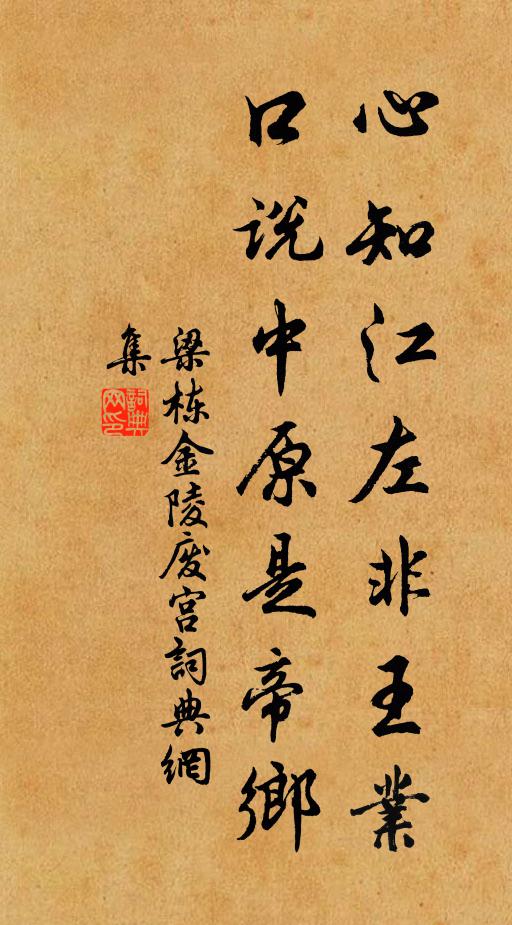 心知江左非王業
口説中原是帝鄉
梁栋金陵废宫詞典網
集
詞典
网印